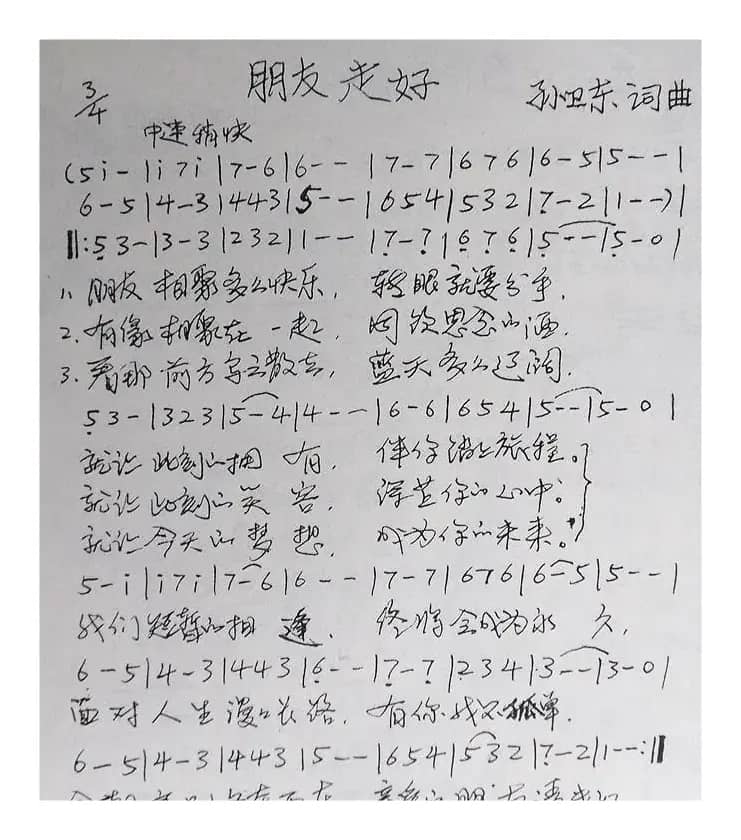 朋友走好
3/4
孙卫东 词曲
中速稍快
(5 i - | i 7 i | 7 - 6 | 6 - - | 7 - 7 | 6 7 6 | 6 - 5 | 5 - - |
6 - 5 | 4 - 3 | 4 4 3 | 5 - - | 6 5 4 | 5 3 2 | 7̣ - 2 | 1 - -) |
‖: 5̣ 3 - | 3 - 3 | 2 3 2 | 1 - - | 7̣ - 7̣ | 6̣ 7̣ 6̣ | 5̣ - - | 5̣ - 0 |
1. 朋友相聚多么快乐, 转眼就要分手,
2. 有缘相聚在一起, 同饮思念的酒.
3. 看那前方乌云散去, 蓝天多么辽阔.
5̣ 3 - | 3 2 3 | 5 - 4 | 4 - - | 6 - 6 | 6 5 4 | 5 - - | 5 - 0 |
就让此刻的拥有, 伴你踏上旅程。
就让此刻的笑容, 深芷你的心中。
就让今天的梦想, 成为你的未来。
5 - i | i 7 i | 7 - 6 | 6 - - | 7 - 7 | 6 7 6 | 6 - 5 | 5 - - |
我们短暂的相逢, 终将会成为永久,
6 - 5 | 4 - 3 | 4 4 3 | 6̣ - - | 7̣ - 7̣ | 2 3 4 | 3 - - | 3 - 0 |
面对人生漫口长路, 有你我不孤单.
6 - 5 | 4 - 3 | 4 4 3 | 5 - - | 6 5 4 | 5 3 2 | 7̣ - 2 | 1 - - :‖